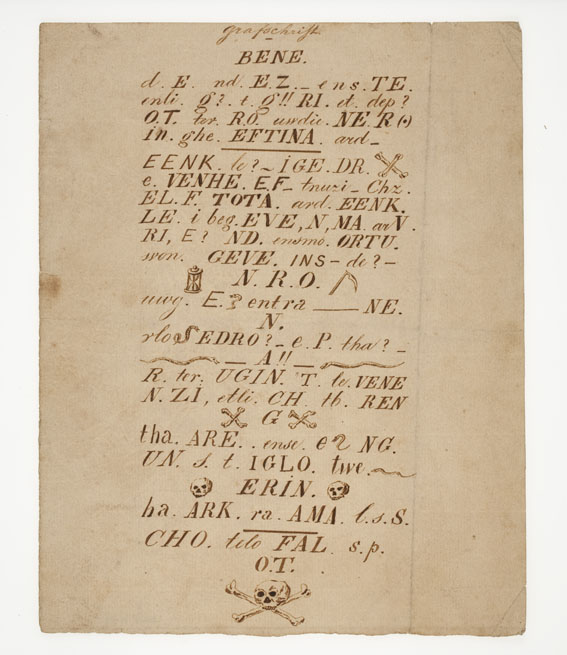 grafschrift
BENE.
d. E. nd. E.Z. _ ens. TE.
enli. g?. t. g!! RI. et. dep?
O.T. ter. R.O. uwdie. NE. R (·)
in. ghe. EFTINA. ard_
EENK. le? _ IGE. DR.
e. VENHE. E.F_ tnuzi_ Chz.
EL. F. TOTA. ard. EENK.
LE. i beg. EVE, N, MA. arV.
RI, E? ND. ensmo. ORTU.
won. GEVE. INS - de? -
N. R. O.
uwg. E.? entra ___ NE.
N.
rloS EDRO? _ e. P. tha? _
_ A!! _
R. ter. UGIN. 'T. le. VENE
N. ZI, etli. CH. tb. REN
G
tha. ARE. . ense. e? NG.
UN. s. t. IGLO. twe.
ERIN.
ha. ARK. ra. AMA. l.s.S.
CHO. telo FAL. s.p.
O.T.